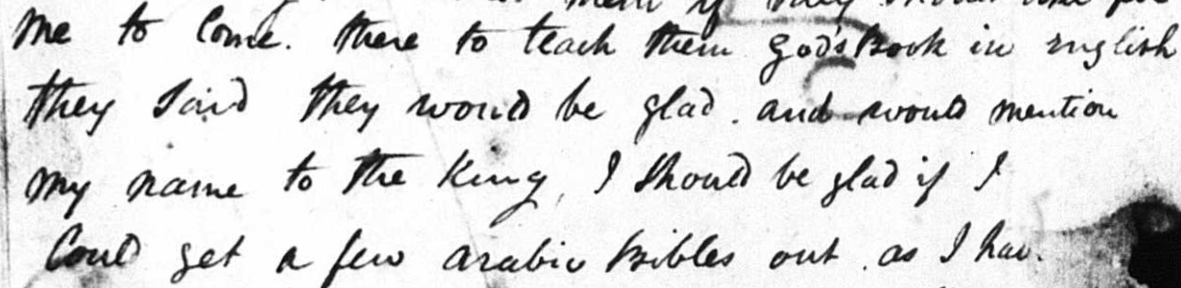 me to Come. there to teach them god's Book in english
they Said they would be glad. and would mention
my name to the King, I Should be glad if I
Could get a few arabic Bibles out. as I hav